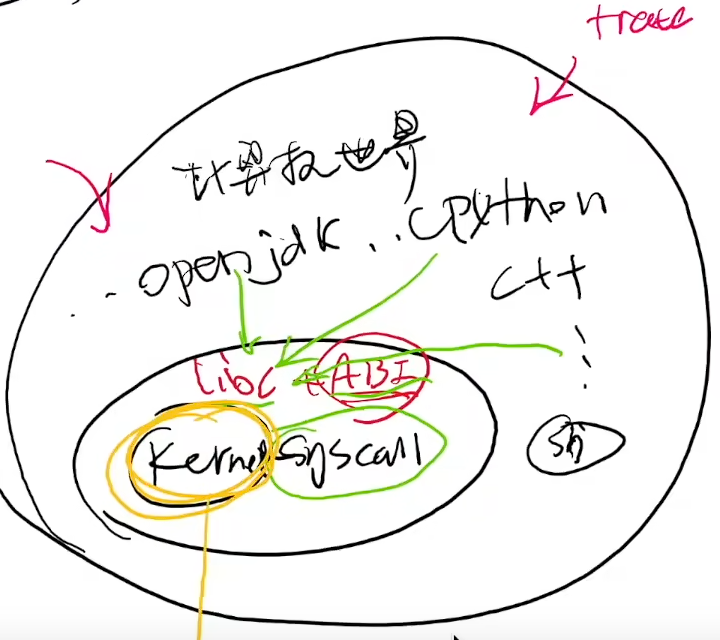 trace
计算机世界
..openjdk..CPython
C++
libc
ABI
Kernel Syscall
sh